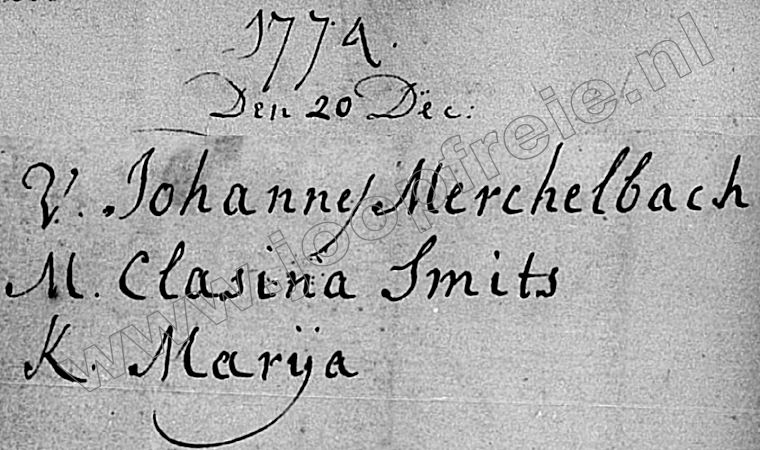 1774.
Den 20 Dëc:
V. Johannes Merchelbach
M. Clasina Smits
K. Marÿa
www.joopfreie.nl